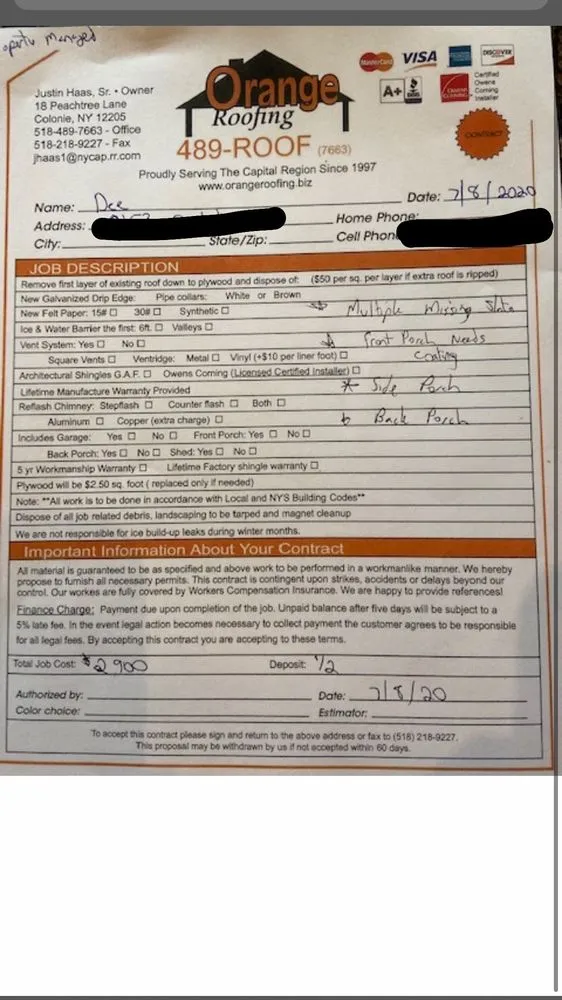 Managed
MasterCard VISA DISCOVER
Justin Haas, Sr. • Owner
18 Peachtree Lane
Colonie, NY 12205
518-489-7663 - Office
518-218-9227 - Fax
jhaas1@nycap.rr.com
Orange
Roofing
489-ROOF (7663)
A+
Certified
Owens
Corning
Installer
CONTRACT
Proudly Serving The Capital Region Since 1997
www.orangeroofing.biz
Name: Dee
Date: 7/8/2020
Address:
Home Phone:
City: State/Zip:
Cell Phone
JOB DESCRIPTION
Remove first layer of existing roof down to plywood and dispose of: ($50 per sq. per layer if extra roof is ripped)
New Galvanized Drip Edge: Pipe collars: White or Brown
New Felt Paper: 15# ☐ 30# ☐ Synthetic ☐
Multiple Missing Slate
Ice & Water Barrier the first: 6ft. ☐ Valleys ☐
Vent System: Yes ☐ No ☐
Front Porch Needs
Coating
Square Vents ☐ Ventridge: Metal ☐ Vinyl (+$10 per liner foot) ☐
Architectural Shingles G.A.F. ☐ Owens Corning (Licensed Certified Installer) ☐
* Side Porch
Lifetime Manufacture Warranty Provided
Reflash Chimney: Stepflash ☐ Counter flash ☐ Both ☐
Aluminum ☐ Copper (extra charge) ☐
Back Porch
Includes Garage: Yes ☐ No ☐ Front Porch: Yes ☐ No ☐
Back Porch: Yes ☐ No ☐ Shed: Yes ☐ No ☐
5 yr Workmanship Warranty ☐ Lifetime Factory shingle warranty ☐
Plywood will be $2.50 sq. foot ( replaced only if needed)
Note: **All work is to be done in accordance with Local and NYS Building Codes**
Dispose of all job related debris, landscaping to be tarped and magnet cleanup
We are not responsible for ice build-up leaks during winter months.
Important Information About Your Contract
All material is guaranteed to be as specified and above work to be performed in a workmanlike manner. We hereby
propose to furnish all necessary permits. This contract is contingent upon strikes, accidents or delays beyond our
control. Our workes are fully covered by Workers Compensation Insurance. We are happy to provide references!
Finance Charge: Payment due upon completion of the job. Unpaid balance after five days will be subject to a
5% late fee. In the event legal action becomes necessary to collect payment the customer agrees to be responsible
for all legal fees. By accepting this contract you are accepting to these terms.
Total Job Cost: $2900 Deposit: 1/2
Authorized by: Date: 7/8/20
Color choice: Estimator:
To accept this contract please sign and return to the above address or fax to (518) 218-9227.
This proposal may be withdrawn by us if not accepted within 60 days.